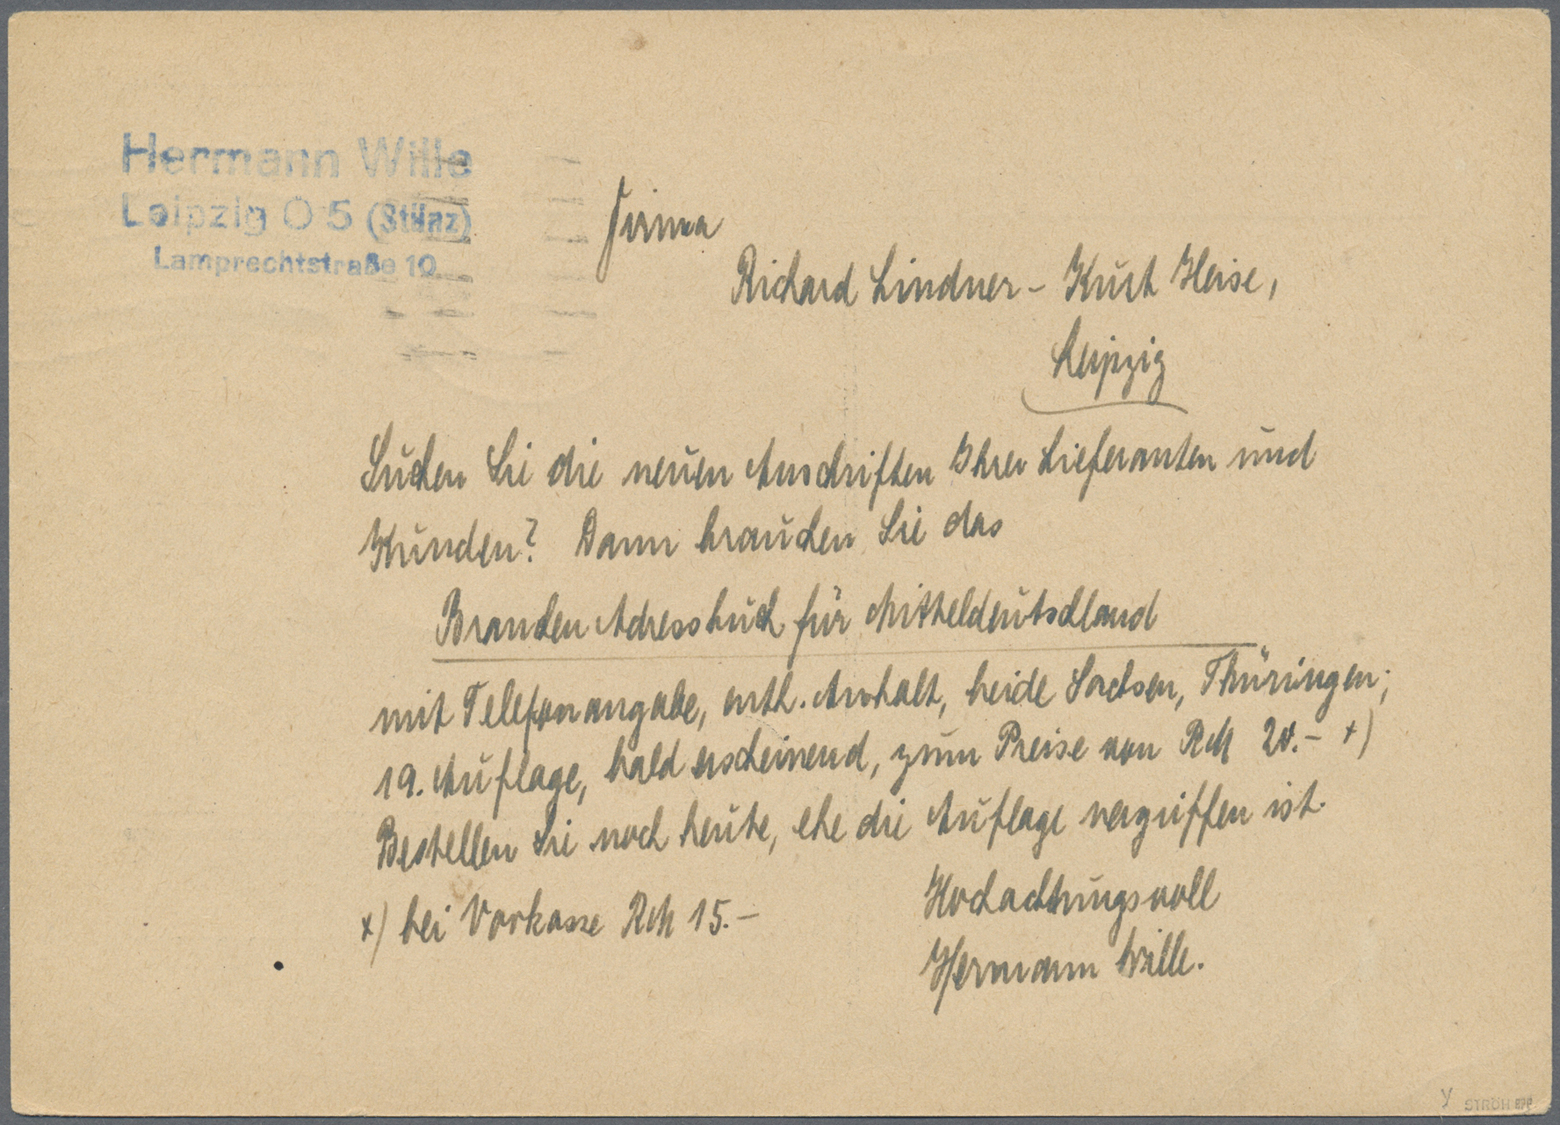 Hermann Wille
Leipzig O 5 (Stünz)
Lamprechtstraße 10
Firma
Richard Lindner - Kurt Heise,
Leipzig
Suchen Sie die neuen Anschriften Ihrer Lieferanten und
Kunden? Dann brauchen Sie das
Branchen Adressbuch für Mitteldeutschland
mit Telefonangabe, enth. Anhalt, beide Sachsen, Thüringen;
19. Auflage, bald erscheinend, zum Preise von RM 20.- x)
Bestellen Sie noch heute, ehe die Auflage vergriffen ist.
x) bei Vorkasse RM 15.-
Hochachtungsvoll
Hermann Wille.